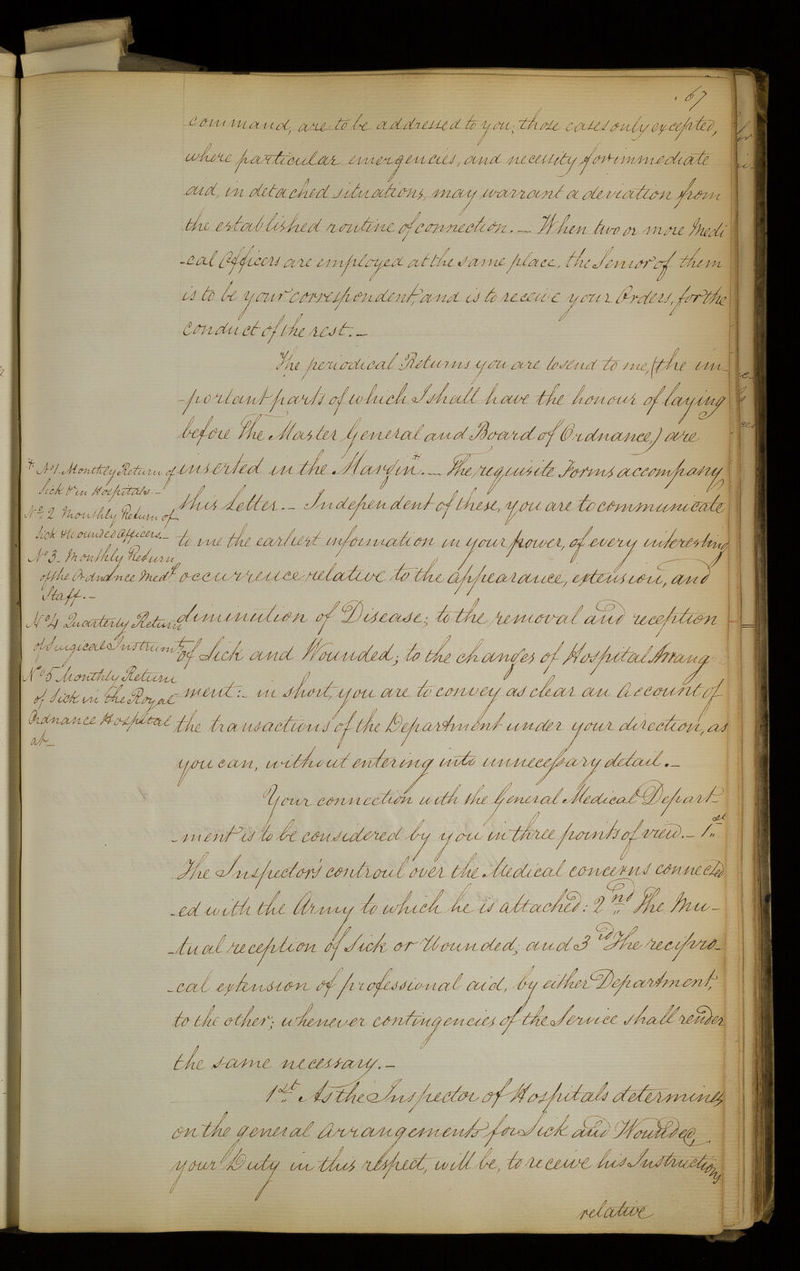 67
command, are to be addressed to you, those cases only excepted,
where particular emergencies, and necessity for immediate
aid, in detached situations, may warrant a deviation from
the established routine of connection. — When two or more Medi
-cal Officers are employed at the same place, the Senior of them
is to be your correspondent, and is to receive your Orders, for the
conduct of the rest. —
The periodical Returns you are to send to me, (the im-
-portant parts of which I shall have the honour of laying
before The Master General and Board of Ordnance) are
inserted in the Margin*. — The requisite Forms accompany
this Letter. — Independent of these, you are to communicate
to me the earliest information in your power, of every interesting
occurrence relative to the appearance, extension, and
diminution of Disease; to the removal and reception
of Sick and Wounded; to the changes of Hospital Arrang
ment: — in short, you are to convey as clear an Account of
the transactions of the Department under your direction, as
you can, without entering into unnecessary detail. —
* No. 1. Monthly Return of
Sick &c in Hospitals —
No. 2 Monthly Return of
Sick & Wounded Officers —
No. 3. Monthly Return
of the Ordnance Medl.
Staff. —
No. 4 Quarterly Return
of Surgical Instrumts.
No. 5 Monthly Return
of Sick in the Royal
Ordnance Hospital
at —
Your connection with the General Medical Depart-
-ment is to be considered by you in three points of view. — 1st.
The Inspector's controul over the Medical concerns connected
-ed with the Army to which he is attached: 2nd. The Mu-
-tual reception of Sick or Wounded; and 3rd The recipro-
-cal extension of professional aid, by either Department,
to the other; whenever contingencies of the Service shall render
the same necessary. —
1st. As the Inspector of Hospitals determines
on the general Arrangements for Sick and Wounded,
your Duty in this respect, will be, to receive his Instructions
relative